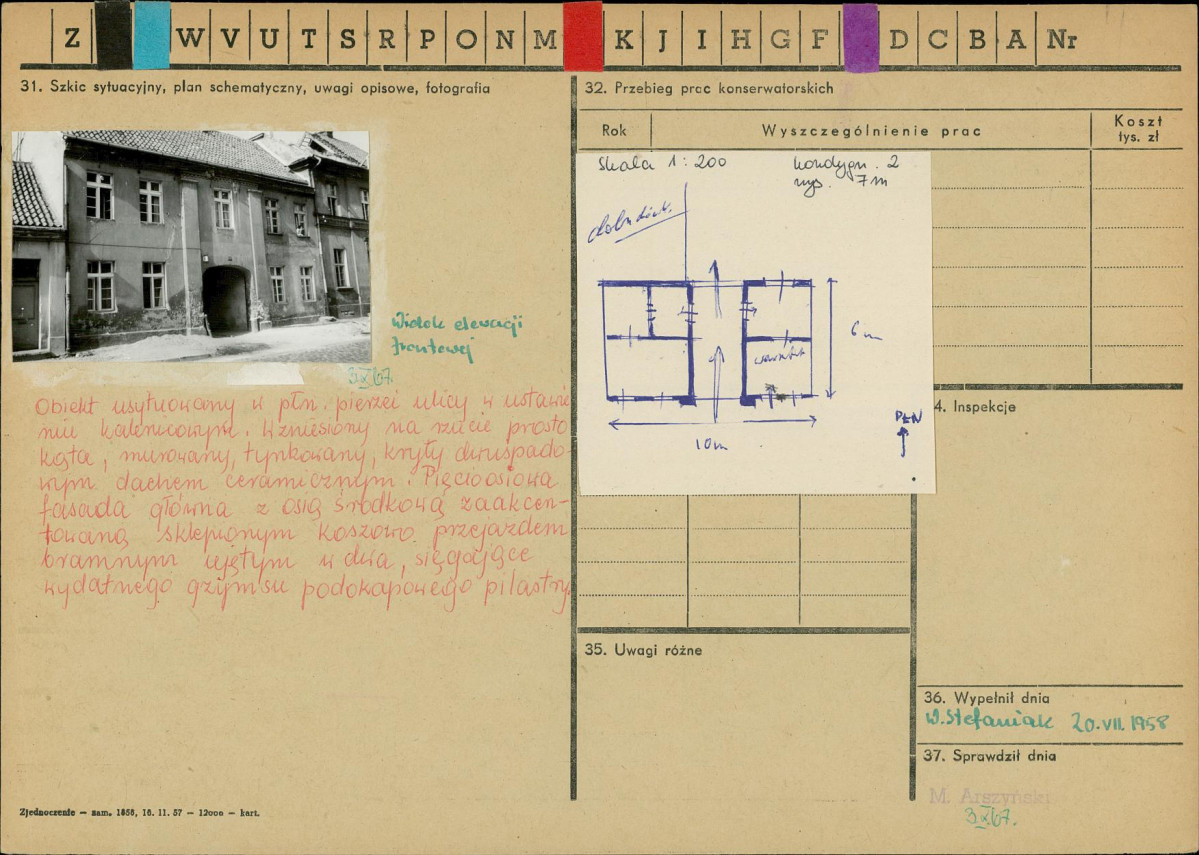 Z W V U T S R P O N M K J I H G F D C B A Nr
31. Szkic sytuacyjny, plan schematyczny, uwagi opisowe, fotografia
Widok elewacji
frontowej
3.X.67.
Obiekt usytuowany w płn. pierzei ulicy w ustawie
niu kalenicowym. Wzniesiony na rzucie prosto
kąta, murowany, tynkowany, kryty dwuspado-
wym dachem ceramicznym. Pięcioosiowa
fasada główna z osią środkową zaakcen-
towaną sklepionym koszowo przejazdem
bramnym ujętym w dwa, sięgające
wydatnego gzymsu podokapowego pilastry.
Zjednoczenie — zam. 1858, 16. 11. 57 — 12000 — kart.
32. Przebieg prac konserwatorskich
Rok
Wyszczególnienie prac
Koszt
tys. zł
Skala 1:200
kondygn. 2
wys. 7 m
6 m
10 m
PŁN
4. Inspekcje
35. Uwagi różne
36. Wypełnił dnia
W. Stefaniak 20.VII.1958
37. Sprawdził dnia
M. Arszyński
3.X.67.